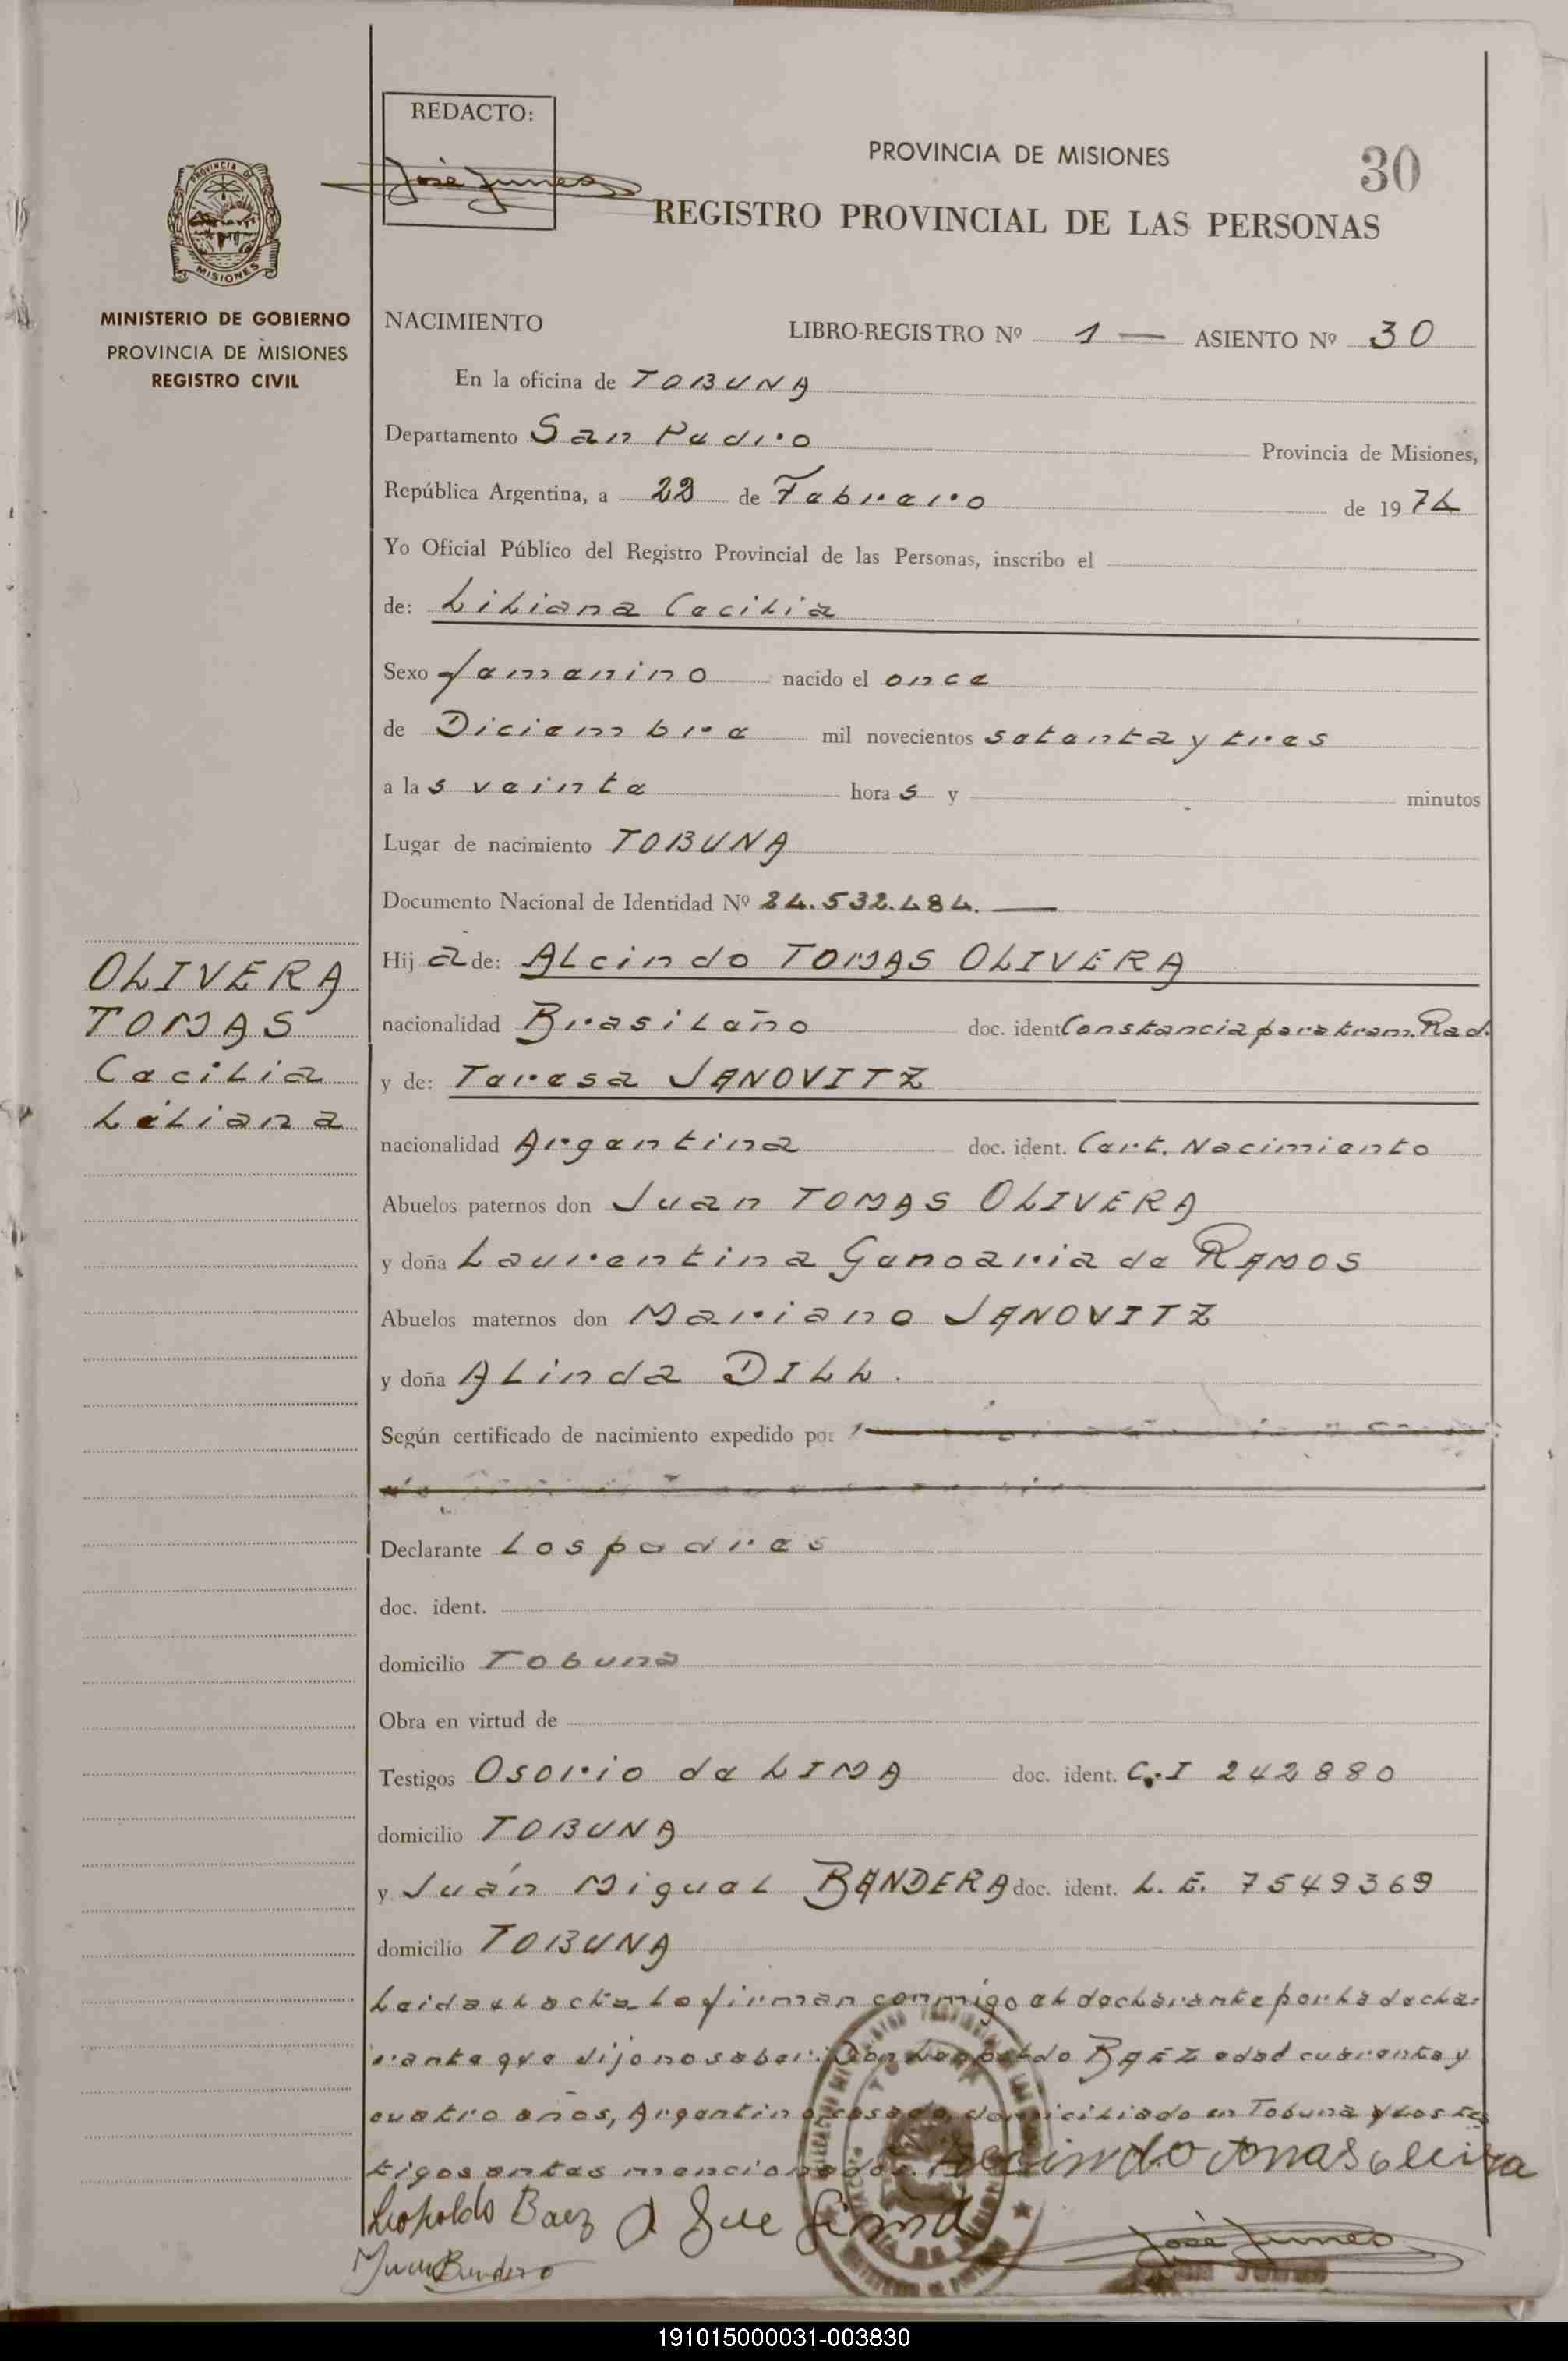 REDACTO:
José Junes
PROVINCIA DE MISIONES
30
REGISTRO PROVINCIAL DE LAS PERSONAS
PROVINCIA DE
MISIONES
MINISTERIO DE GOBIERNO
PROVINCIA DE MISIONES
REGISTRO CIVIL
NACIMIENTO LIBRO-REGISTRO Nº 1 — ASIENTO Nº 30
En la oficina de TOBUNA
Departamento San Pedro Provincia de Misiones,
República Argentina, a 22 de Febrero de 1974
Yo Oficial Público del Registro Provincial de las Personas, inscribo el
de: Liliana Cecilia
Sexo femenino nacido el once
de Diciembre mil novecientos setenta y tres
a las veinte horas y minutos
Lugar de nacimiento TOBUNA
Documento Nacional de Identidad Nº 24.532.484. —
Hija de: Alcindo TOMAS OLIVERA
nacionalidad Brasileño doc. ident Constancia para tram. Rad.
y de: Teresa JANOVITZ
nacionalidad Argentina doc. ident. Cert. Nacimiento
Abuelos paternos don Juan TOMAS OLIVERA
y doña Laurentina Genoaria de RAMOS
Abuelos maternos don Mariano JANOVITZ
y doña ALinda DILL.
Según certificado de nacimiento expedido por
Declarante Los padres
doc. ident.
domicilio Tobuna
Obra en virtud de
Testigos Osorio de LIMA doc. ident. C.I 242880
domicilio TOBUNA
y Juan Miguel BANDERA doc. ident. L. E. 7549369
domicilio TOBUNA
Leida el acta la firman conmigo el declarante por la decla-
rante que dijo no saber: Don Leopoldo BAEZ edad cuarenta y
cuatro años, Argentino, casado, domiciliado en Tobuna y los tes
tigos antes mencionados. Alcindo tomas oleivra
Leopoldo Baez
José Junes
Juan Bandera
OLIVERA
TOMAS
Cecilia
Liliana
191015000031-003830